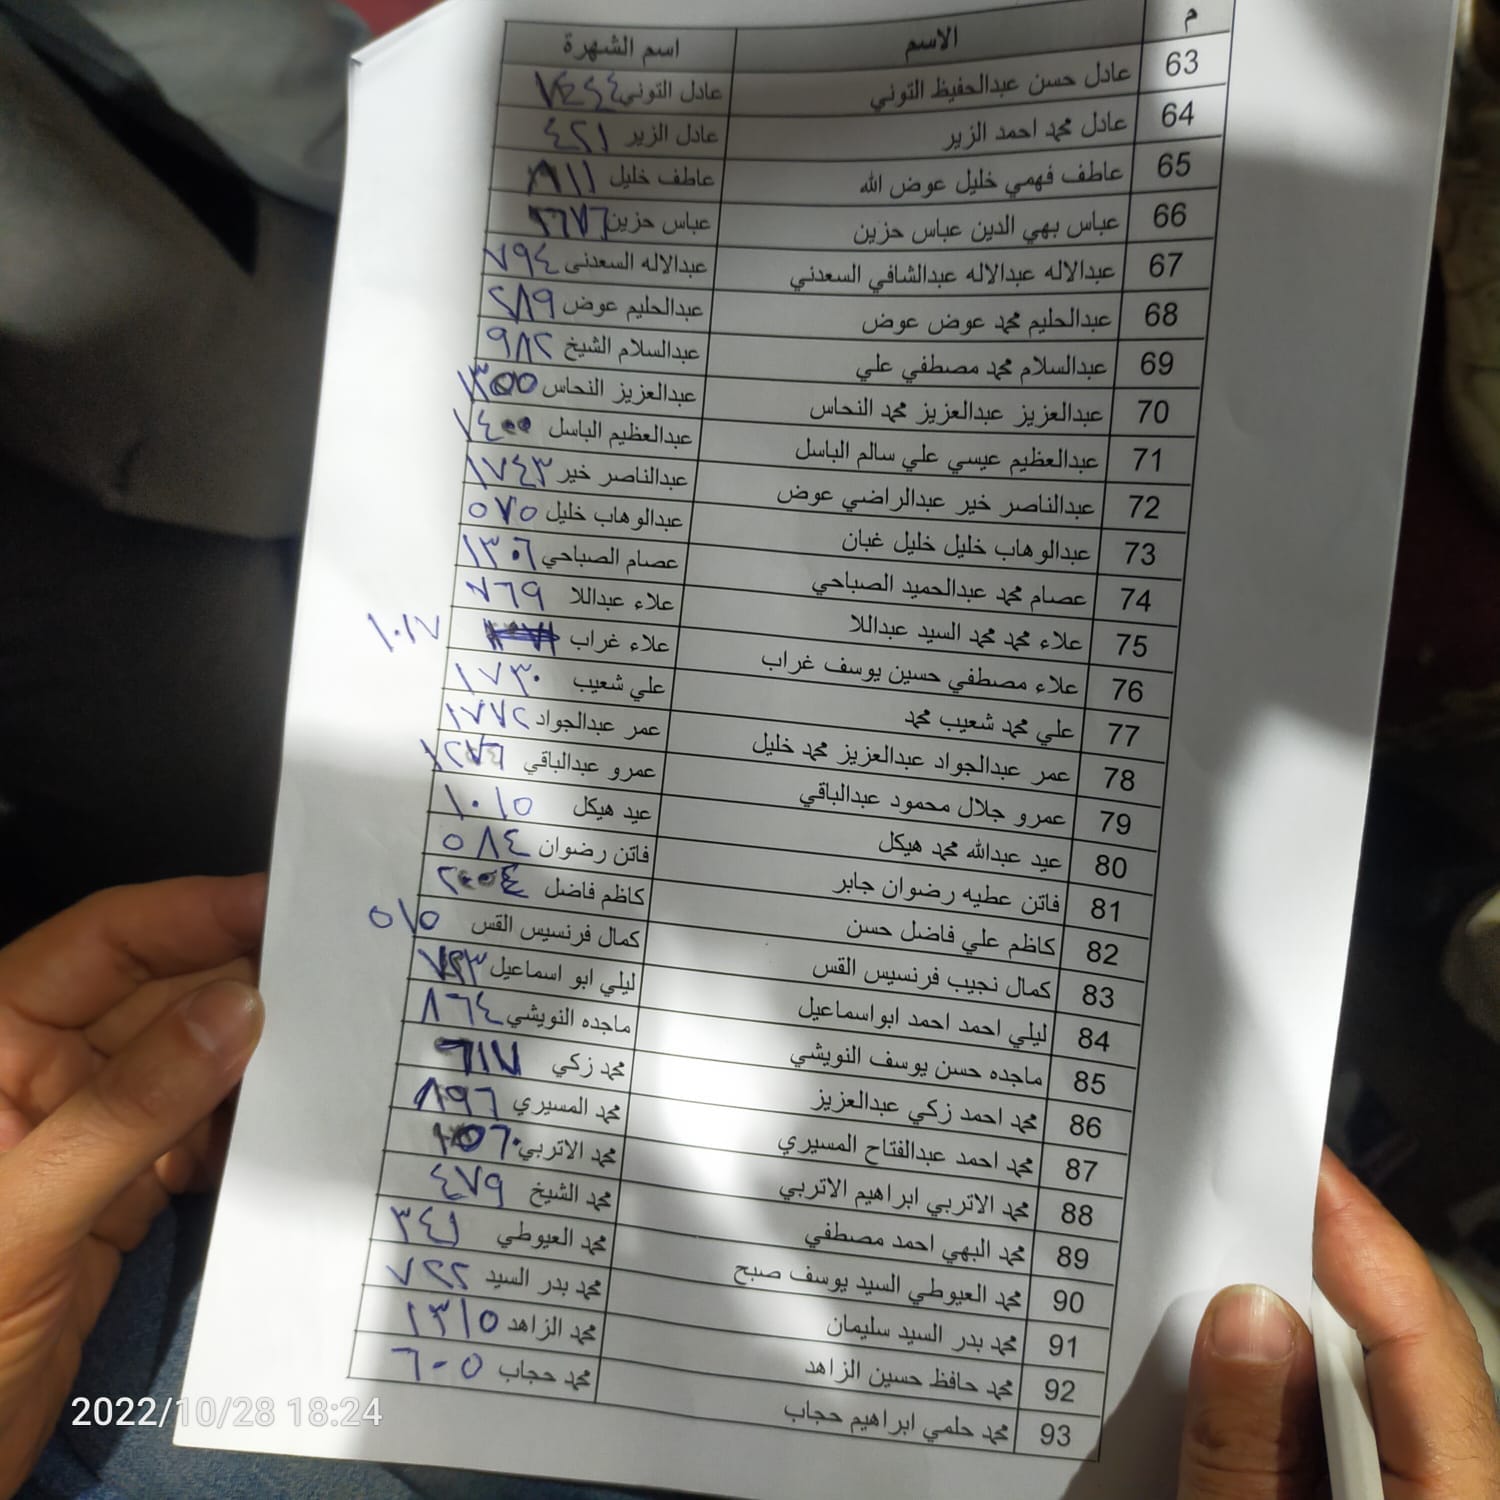 م الاسم اسم الشهرة
63 عادل حسن عبدالحفيظ التوني عادل التوني
64 عادل محمد احمد الزير عادل الزير ٤٢١
65 عاطف فهمي خليل عوض الله عاطف خليل ٨١١
66 عباس بهي الدين عباس حزين عباس حزين
67 عبدالاله عبدالاله عبدالشافي السعدني عبدالاله السعدنى ٧٩٤
68 عبدالحليم محمد عوض عوض عبدالحليم عوض ٢٨٩
69 عبدالسلام محمد مصطفي علي عبدالسلام الشيخ ٩٨٢
70 عبدالعزيز عبدالعزيز محمد النحاس عبدالعزيز النحاس ١٣٥٥
71 عبدالعظيم عيسي علي سالم الباسل عبدالعظيم الباسل ١٤٠٠
72 عبدالناصر خير عبدالراضي عوض عبدالناصر خير ١٧٤٣
73 عبدالوهاب خليل خليل غبان عبدالوهاب خليل ٥٧٥
74 عصام محمد عبدالحميد الصباحي عصام الصباحي ١٣٠٦
75 علاء محمد محمد السيد عبداللا علاء عبداللا ٧٦٩
76 علاء مصطفي حسين يوسف غراب علاء غراب ١٠١٧
77 علي محمد شعيب محمد علي شعيب ١٧٣٠
78 عمر عبدالجواد عبدالعزيز محمد خليل عمر عبدالجواد ١٧٧٢
79 عمرو جلال محمود عبدالباقي عمرو عبدالباقي
80 عيد عبدالله محمد هيكل عيد هيكل ١٠١٥
81 فاتن عطيه رضوان جابر فاتن رضوان ٥٨٤
82 كاظم علي فاضل حسن كاظم فاضل ٢٠٠٤
83 كمال نجيب فرنسيس القس كمال فرنسيس القس ٥١٥
84 ليلي احمد احمد ابواسماعيل ليلي ابو اسماعيل
85 ماجده حسن يوسف النويشي ماجده النويشي ٨٦٤
86 محمد احمد زكي عبدالعزيز محمد زكي ٦١٧
87 محمد احمد عبدالفتاح المسيري محمد المسيري ٨٩٦
88 محمد الاتربي ابراهيم الاتربي محمد الاتربي
89 محمد البهي احمد مصطفي محمد الشيخ ٤٧٩
90 محمد العيوطي السيد يوسف صبح محمد العيوطي ٣٤١
91 محمد بدر السيد سليمان محمد بدر السيد ٧٢٢
92 محمد حافظ حسين الزاهد محمد الزاهد ١٣١٥
93 محمد حلمي ابراهيم حجاب محمد حجاب ٦٠٥
2022/10/28 18:24